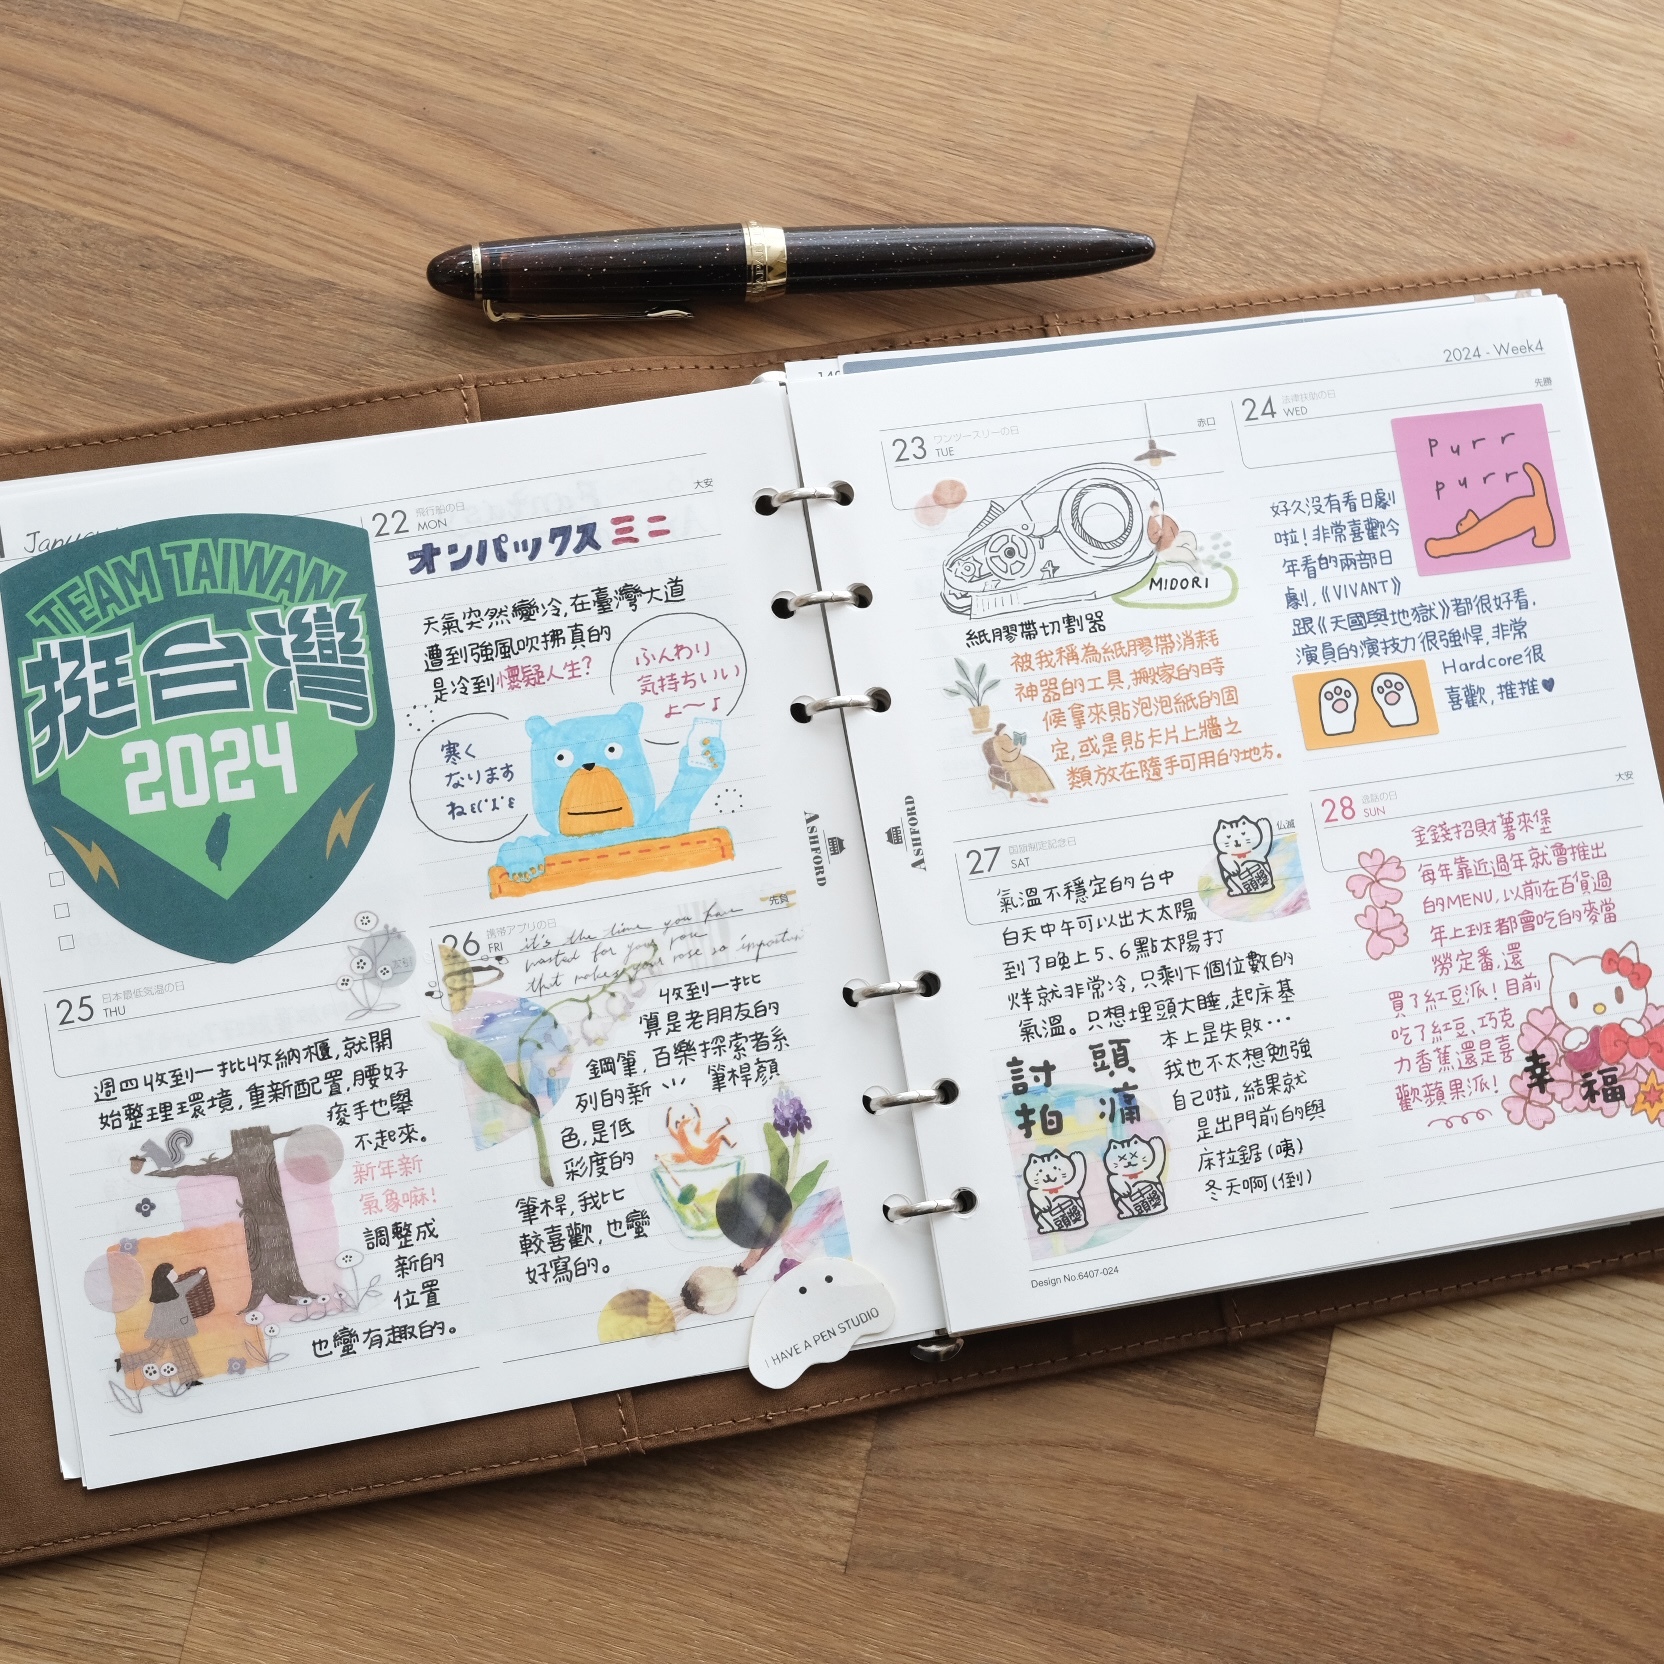 TEAM TAIWAN
挺台灣
2024
22
飛行船の日
MON
大安
オンパックス ミニ
天氣突然變冷,在臺灣大道
遭到強風吹拂真的
是冷到懷疑人生?
ふんわり
気持ちいい
よ〜♪
寒く
なります
ね
25
日本最低気温の日
THU
友引
週四收到一批收納櫃,就開
始整理環境,重新配置,腰好
痠手也舉
不起來。
新年新
氣象嘛!
調整成
新的
位置
也蠻有趣的。
26
携帯アプリの日
FRI
先負
it's the time you have
wasted for your rose
that makes your rose so important
收到一批
算是老朋友的
鋼筆,百樂探索者系
列的新 筆桿顏
色,是低
彩度的
筆桿,我比
較喜歡,也蠻
好寫的。
I HAVE A PEN STUDIO
ASHFORD
ASHFORD
2024 - Week4
23
ワンツースリーの日
TUE
赤口
MIDORI
紙膠帶切割器
被我稱為紙膠帶消耗
神器的工具,搬家的時
候拿來貼泡泡紙的固
定,或是貼卡片上牆之
類放在隨手可用的地方。
24
法律扶助の日
WED
先勝
purr
purr
好久沒有看日劇
啦!非常喜歡今
年看的兩部日
劇,《VIVANT》
跟《天國與地獄》都很好看,
演員的演技力很強悍,非常
Hardcore很
喜歡,推推♥
27
国旗制定記念日
SAT
仏滅
氣溫不穩定的台中
白天中午可以出大太陽
到了晚上5、6點太陽打
烊就非常冷,只剩下個位數的
氣溫。只想埋頭大睡,起床基
本上是失敗···
我也不太想勉強
自己啦,結果就
是出門前的與
床拉鋸(咦)
冬天啊(倒)
討拍
頭痛
28
逸話の日
SUN
大安
金錢招財薯來堡
每年靠近過年就會推出
的MENU,以前在百貨過
年上班都會吃的麥當
勞定番,還
買了紅豆派!目前
吃了紅豆、巧克
力香蕉還是喜
歡蘋果派!
幸福
Design No.6407-024